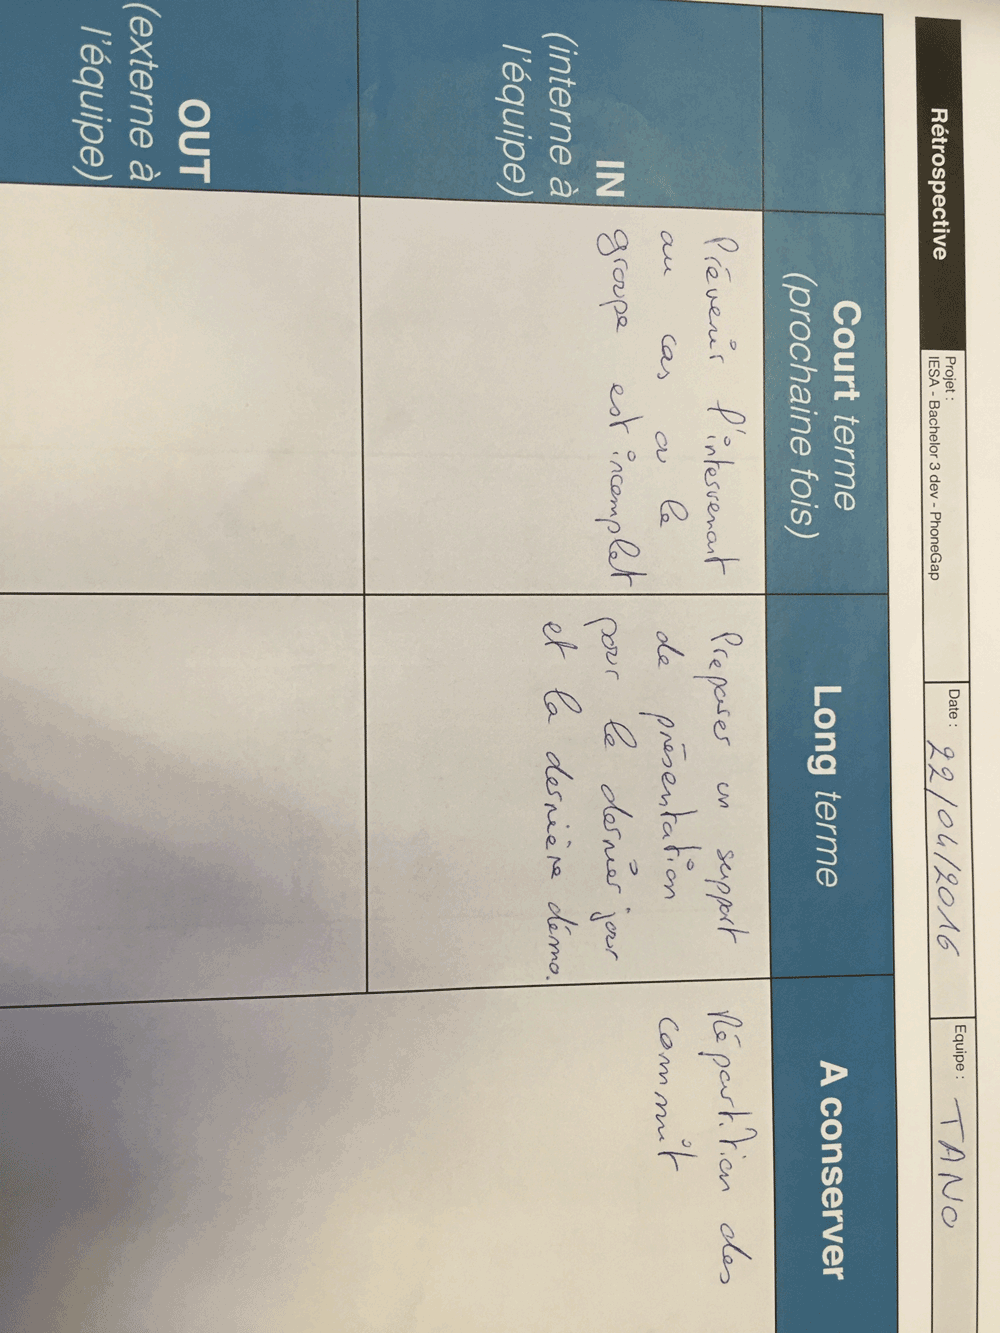 Rétrospective
Projet :
IESA - Bachelor 3 dev - PhoneGap
Date : 22/04/2016
Equipe : TANO
Court terme
(prochaine fois)
Long terme
A conserver
IN
(interne à
l'équipe)
Prévenir l'intervenant
au cas où le
groupe est incomplet
Preparer un support
de présentation
pour le dernier jour
et la dernière démo.
Répartition des
commit
OUT
(externe à
l'équipe)